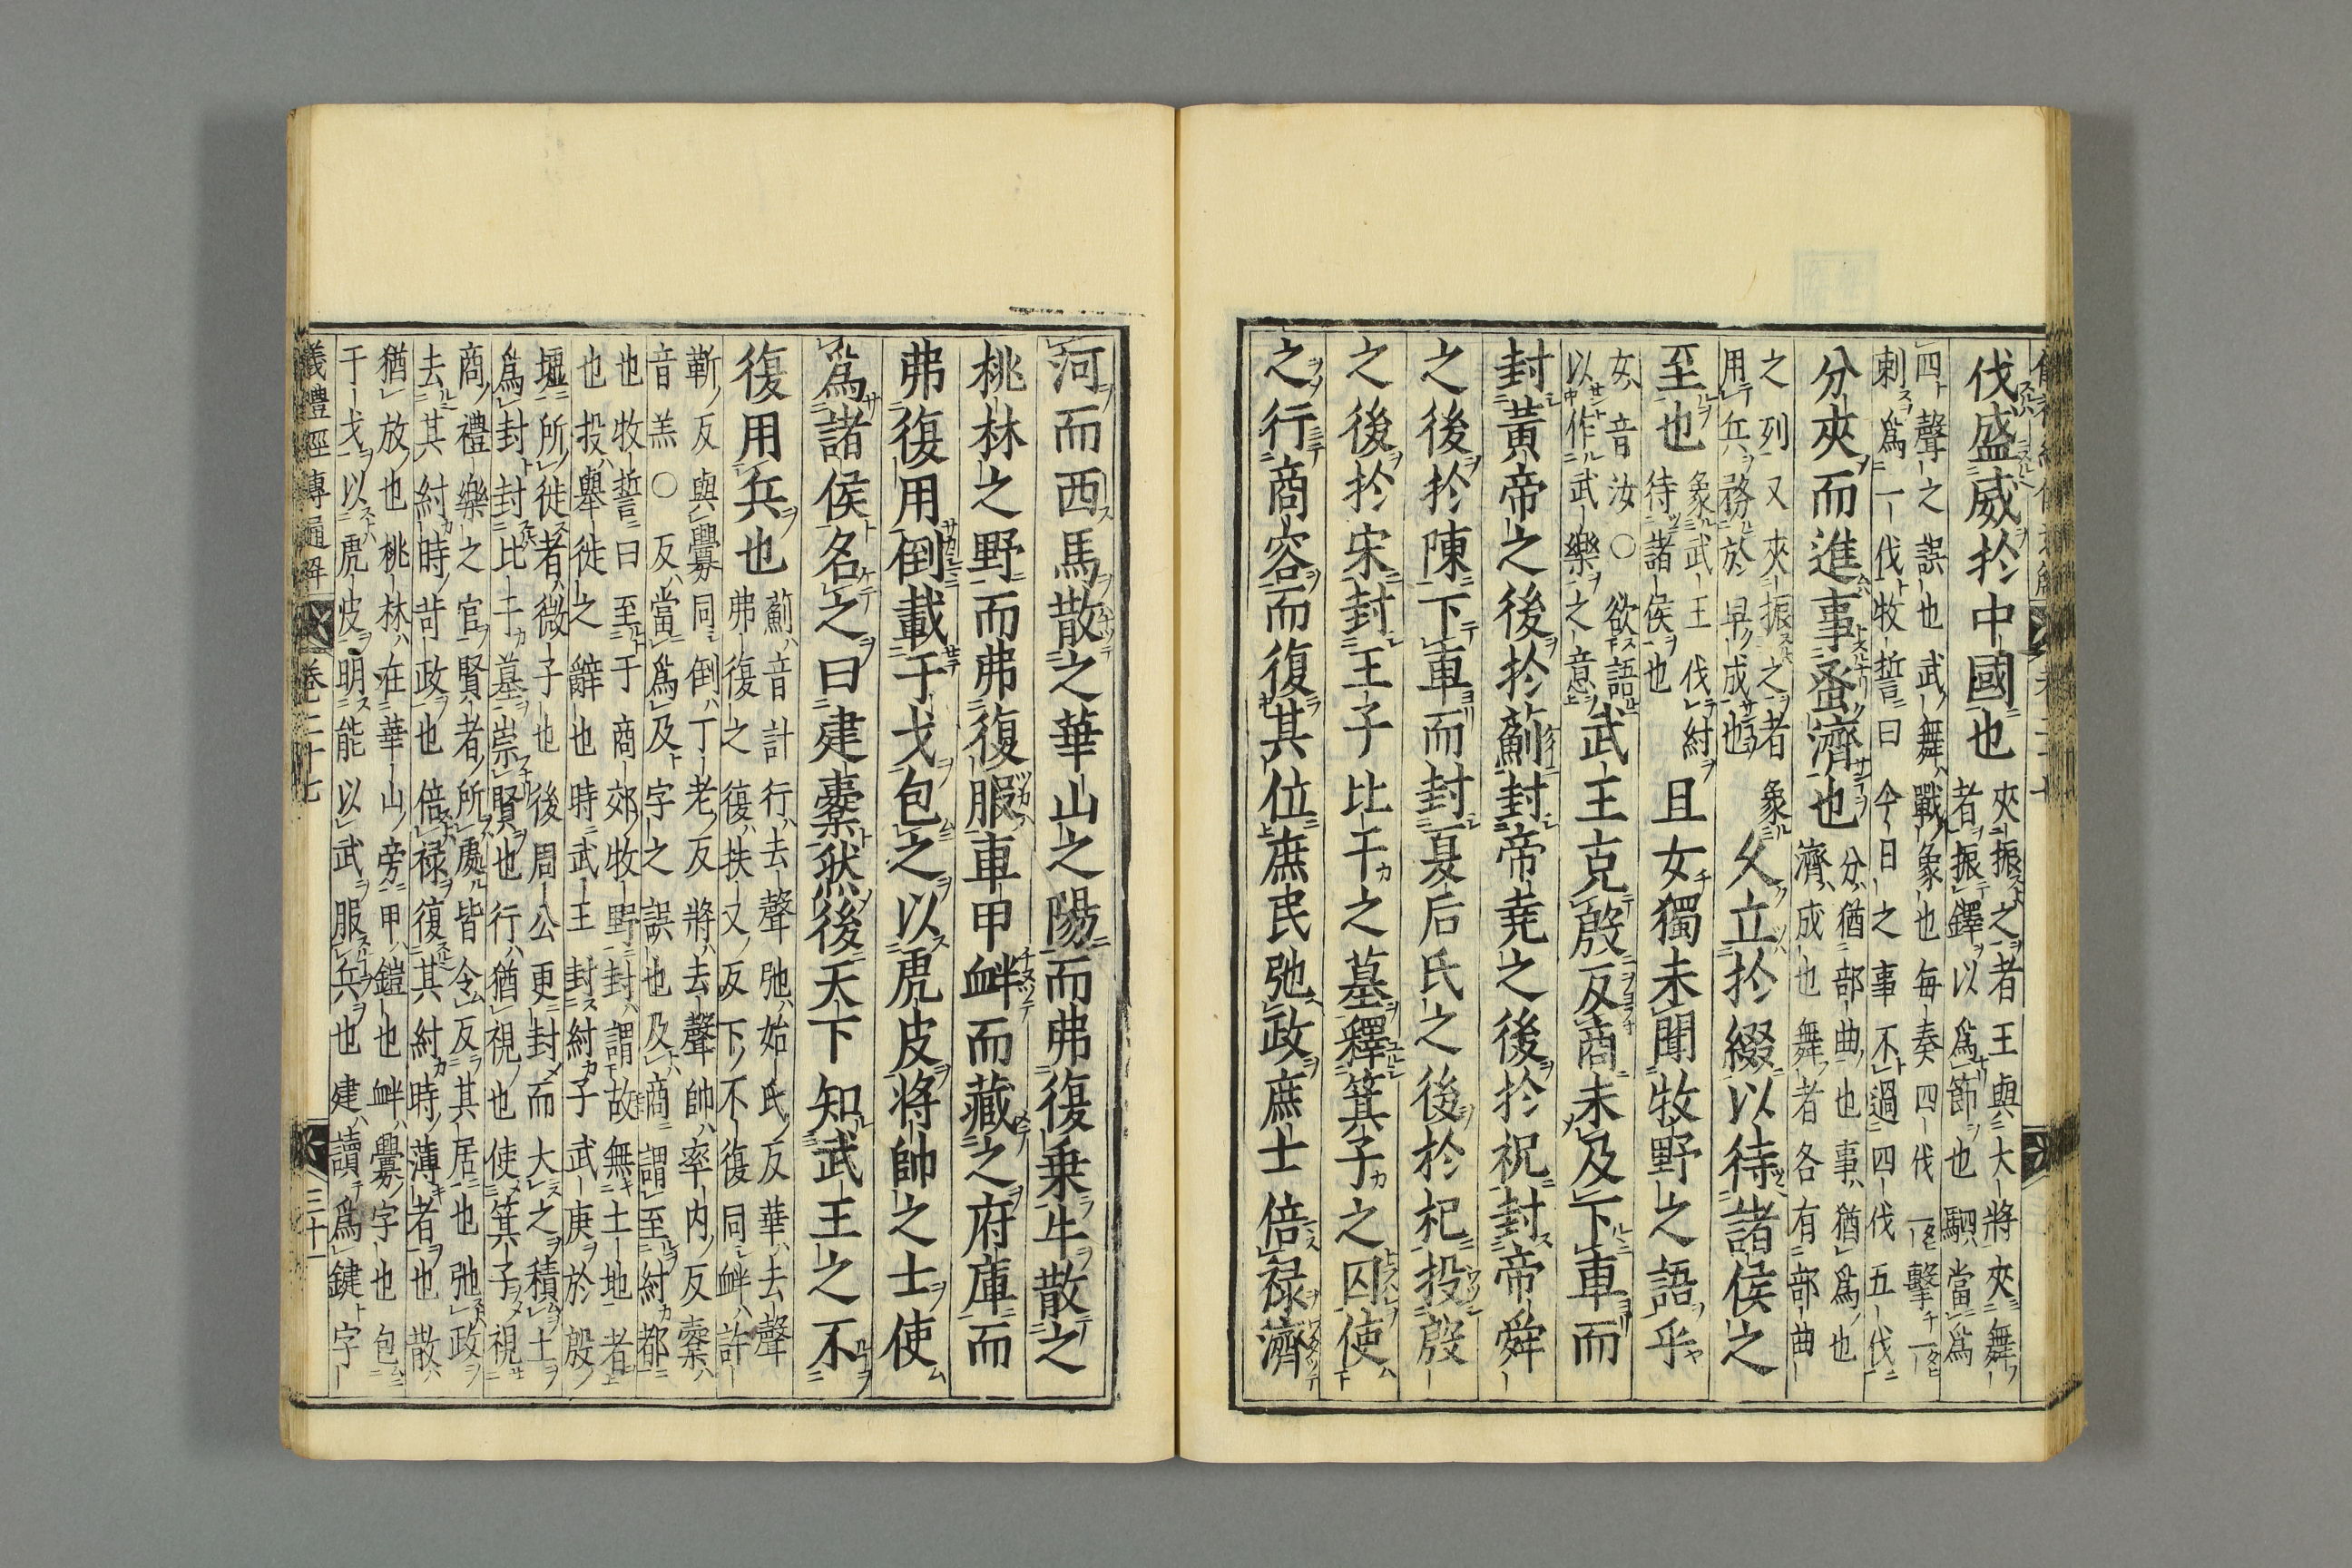 伐盛威扵中國也
夾振之者王與大將夾舞
者振鐸以爲節也駟當爲
四聲之誤也武舞戰象也每奏四伐一擊一
刺爲一伐牧誓曰今日之事不過四伐五伐
分夾而進事蚤濟也
分猶部曲也事猶爲也
濟成也舞者各有部曲
之列又夾振之者象
用兵務於早成也
久立扵綴以待諸侯之
至也
象武王伐紂
待諸侯也
且女獨未聞牧野之語乎
女音汝〇欲語
以作武樂之意
武王克殷反商未及下車而
封黃帝之後扵薊封帝堯之後扵祝封帝舜
之後扵陳下車而封夏后氏之後扵杞投殷
之後扵宋封王子比干之墓釋箕子之囚使
之行商容而復其位庶民弛政庶士倍禄濟
河而西馬散之華山之陽而弗復乗牛散之
桃林之野而弗復服車甲衅而藏之府庫而
弗復用倒載干戈包之以虎皮將帥之士使
爲諸侯名之曰建櫜然後天下知武王之不
復用兵也
薊音計行去聲弛始氏反華去聲
弗復之復扶又反下不復同衅許
靳反與釁同倒丁老反將去聲帥率内反櫜
音羔〇反當爲及字之誤也及商謂至紂都
也牧誓曰至于商郊牧野封謂故無土地者
也投舉徙之辭也時武王封紂子武庚於殷
墟所徙者微子也後周公更封而大之積土
爲封封比干墓崇賢也行猶視也使箕子視
商禮樂之官賢者所處皆令反其居也弛政
去其紂時苛政也倍禄復其紂時薄者也散
猶放也桃林在華山旁甲鎧也衅釁字也包
干戈以虎皮明能以武服兵也建讀爲鍵字
儀禮經傳通解 卷二十七 三十一